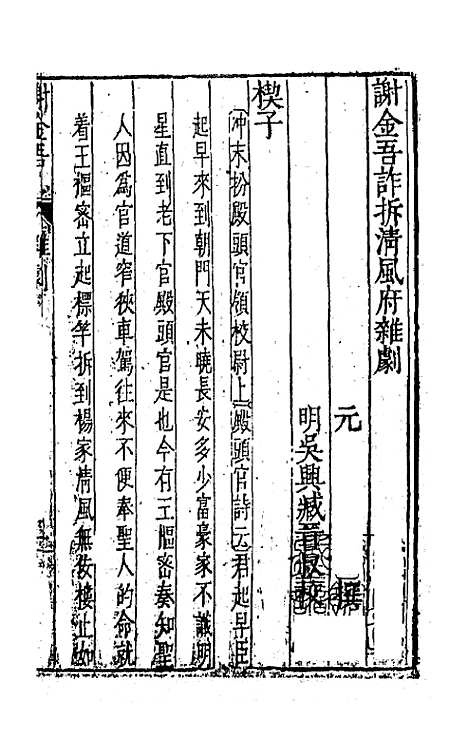 謝金吾詐拆清風府雜劇
元 撰
明吳興臧晉叔校
楔子
冲末扮殿頭官領校尉上殿頭官詩云君起早臣
起早來到朝門天未曉長安多少富豪家不識明
星直到老下官殿頭官是也今有王樞密奏知聖
人因爲官道窄狹車駕往來不便奉聖人的命就
着王樞密立起標竿拆到楊家清風無佞樓止如
謝金吾 雜劇